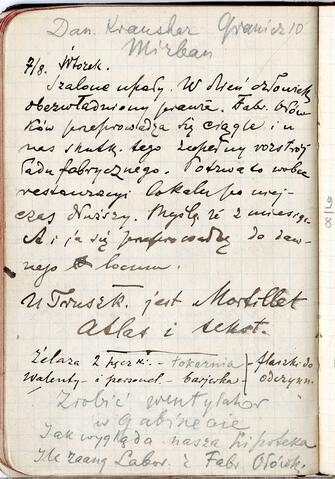 Dan. Kranshar Granicz 10
Mirban
7/8. Wtorek.
Szalone upały. W dzień człowiek
obezwładniony prawie. Fabr. Ołów-
ków przeprowadza się ciągle i u
nas skutk. tego zupełny rozstrój
ładu fabrycznego. Potrwa to wobec
restauracyi lokalu po wiej-
czas dłuższy. Myślę że 2 miesiące
A i ja się przeprowadzę do daw-
nego locum.
U Truszk. jest Mortillet
atlas i tekst.
Żelaza 2 - tokarnia - flaszki do
Walenty - i personel. - barjerka odczynn.
Zrobić wentylator
w gabinecie
Jak wygląda nasza hipoteka
Ile zaang Labor. z Fabr. Ołówk.
9/8